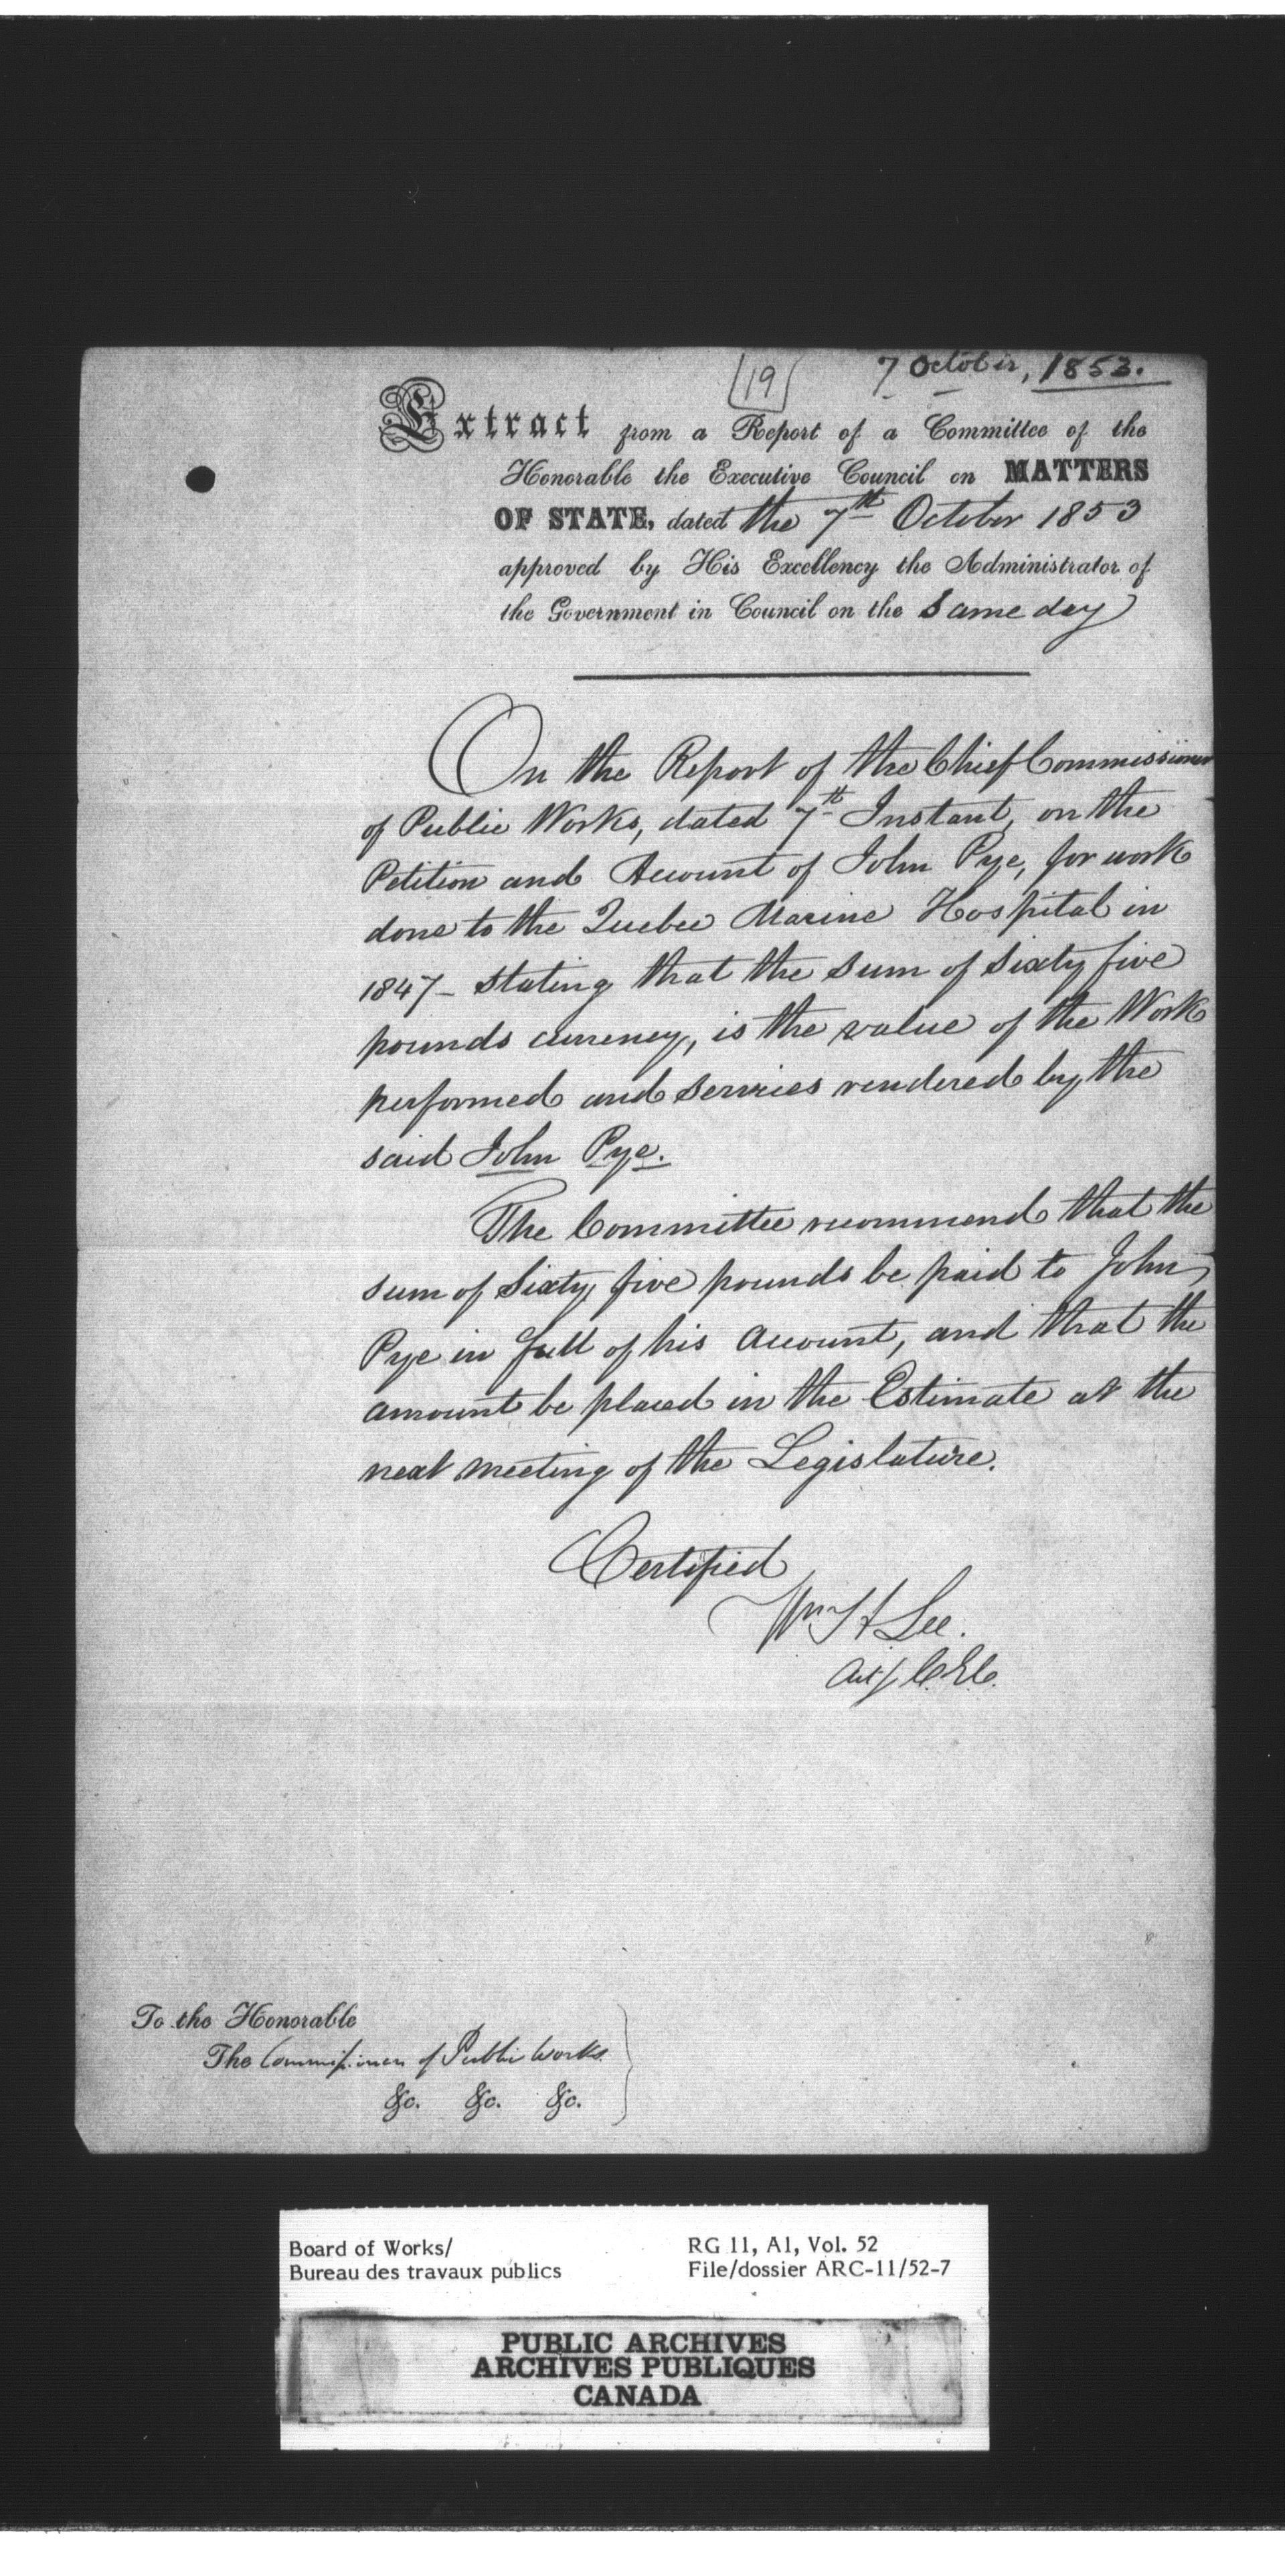 19
7 October, 1853.
Extract from a Report of a Committee of the
Honorable the Executive Council on MATTERS
OF STATE, dated the 7th October 1853
approved by His Excellency the Administrator of
the Government in Council on the same day
On the Report of the Chief Commissioner
of Public Works, dated 7th Instant, on the
Petition and Account of John Pye, for work
done to the Quebec Marine Hospital in
1847 - stating that the sum of Sixty five
pounds currency, is the value of the Work
performed and services rendered by the
said John Pye.
The Committee recommend that the
sum of Sixty five pounds be paid to John
Pye in full of his Account, and that the
amount be placed in the Estimate at the
next meeting of the Legislature.
Certified
Wm H Lee.
Act/ C.E.C.
To the Honorable
The Commissioner of Public Works.
&c. &c. &c.
Board of Works/
Bureau des travaux publics
RG 11, A1, Vol. 52
File/dossier ARC-11/52-7
PUBLIC ARCHIVES
ARCHIVES PUBLIQUES
CANADA